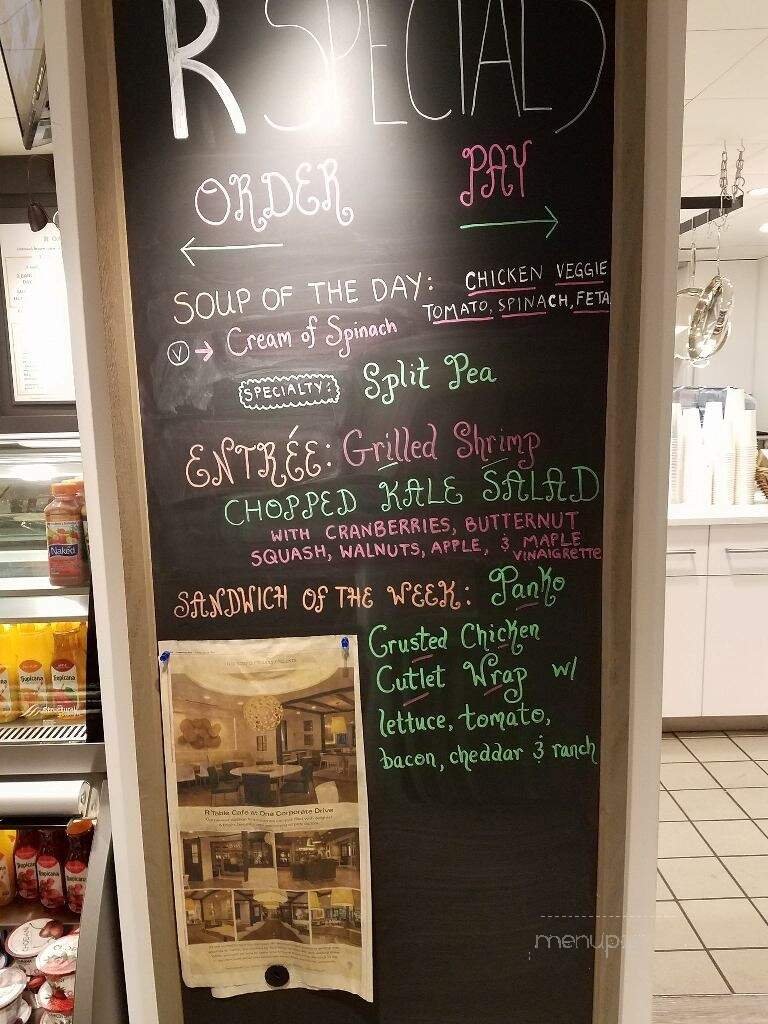 R SPECIALS
ORDER PAY
SOUP OF THE DAY: CHICKEN VEGGIE
TOMATO, SPINACH, FETA
V → Cream of Spinach
SPECIALTY: Split Pea
ENTRÉE: Grilled Shrimp
CHOPPED KALE SALAD
WITH CRANBERRIES, BUTTERNUT
SQUASH, WALNUTS, APPLE, & MAPLE
VINAIGRETTE
SANDWICH OF THE WEEK: Panko
Crusted Chicken
Cutlet Wrap w/
lettuce, tomato,
bacon, cheddar & ranch
R Table Cafe at One Corporate Drive
Naked
Tropicana
Tropicana
Tropicana
Tropicana
menup